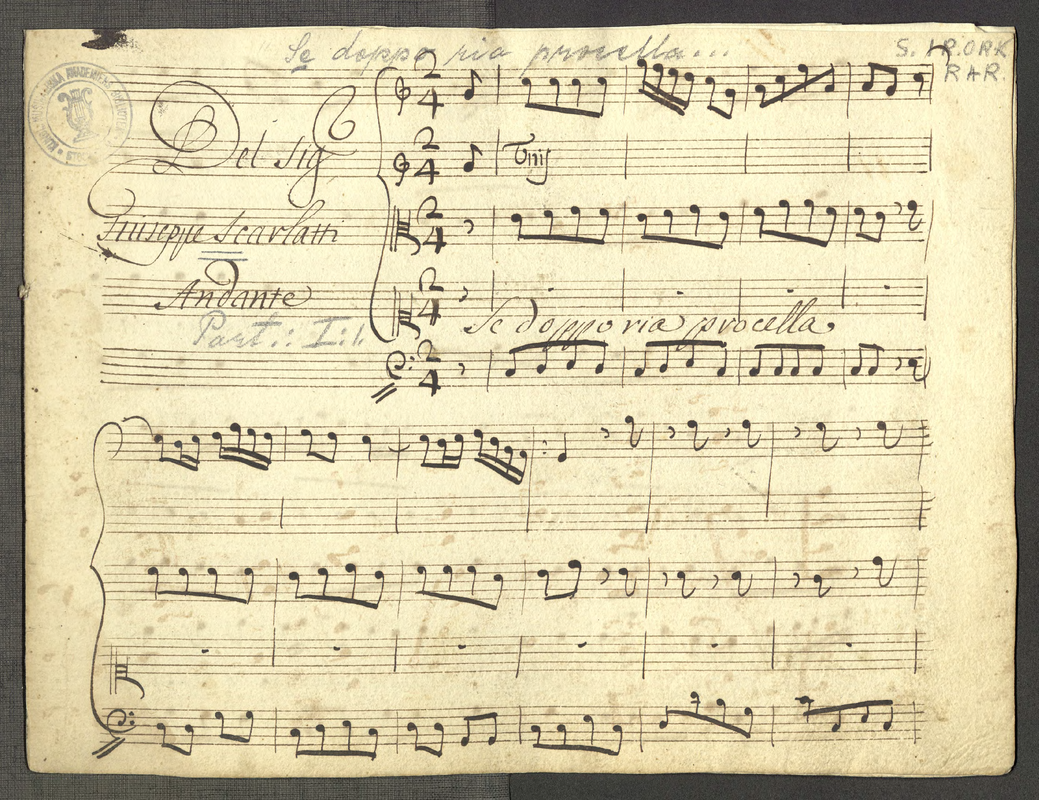 Se doppo ria procella...
S. I R. ORK
RAR.
Del Sig
Giuseppe Scarlatti
Andante
Part:: I:1.
2
4
2
4
Unis
2
4
2
4
Se doppo ria procella
2
4